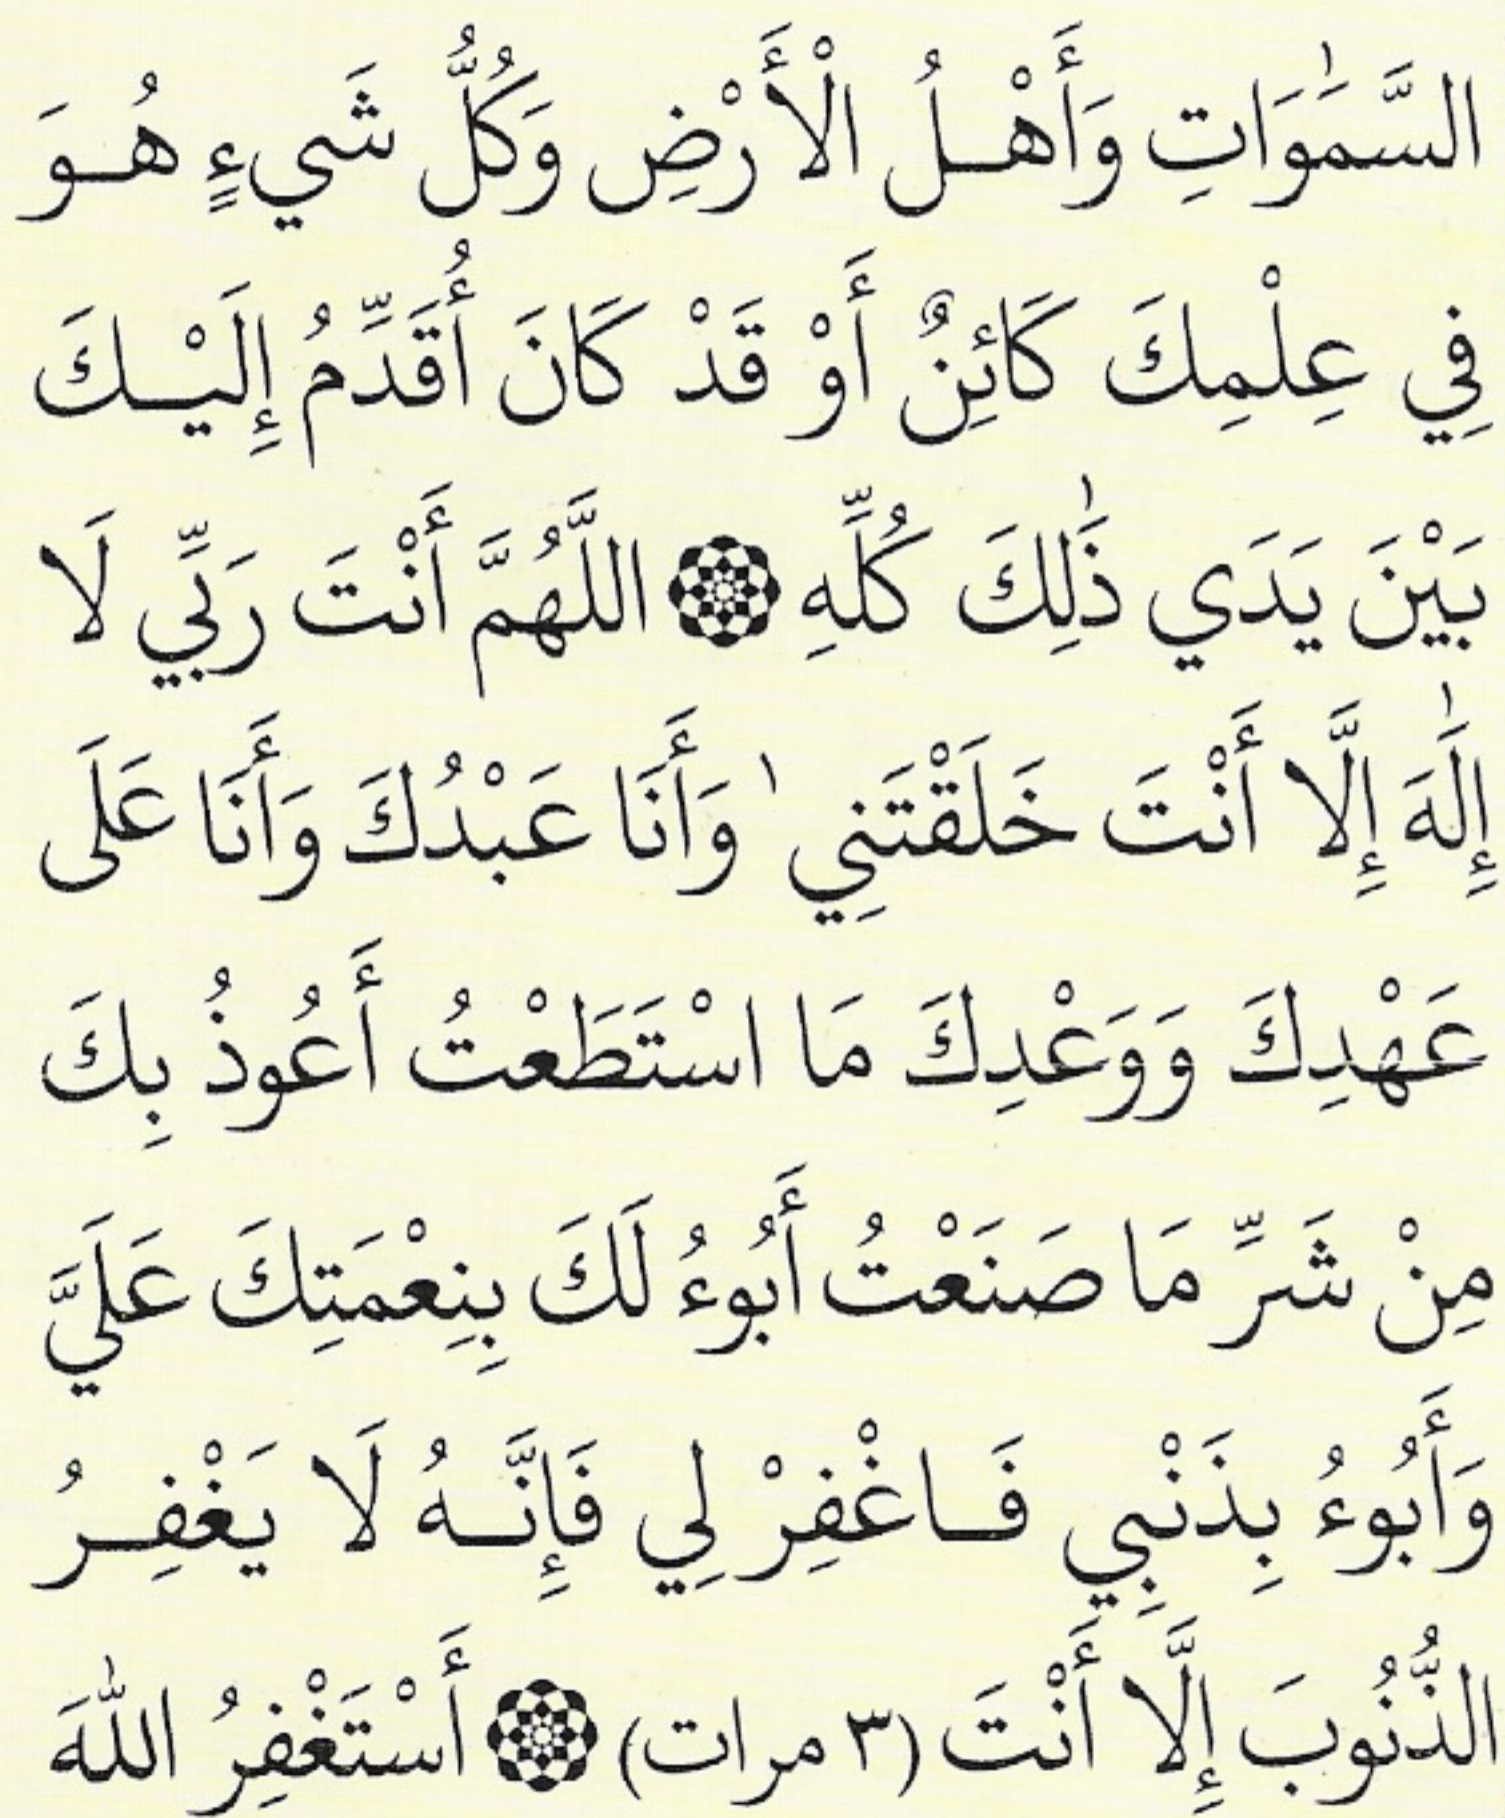 السَّمٰوَاتِ وَأَهْلُ الْأَرْضِ وَكُلُّ شَيءٍ هُوَ
فِي عِلْمِكَ كَائِنٌ أَوْ قَدْ كَانَ أُقَدِّمُ إِلَيْكَ
بَيْنَ يَدَي ذٰلِكَ كُلِّهِ ۞ اللَّهُمَّ أَنْتَ رَبِّي لَا
إِلٰهَ إِلَّا أَنْتَ خَلَقْتَنِي ١ وَأَنَا عَبْدُكَ وَأَنَا عَلَى
عَهْدِكَ وَوَعْدِكَ مَا اسْتَطَعْتُ أَعُوذُ بِكَ
مِنْ شَرِّ مَا صَنَعْتُ أَبُوءُ لَكَ بِنِعْمَتِكَ عَلَيَّ
وَأَبُوءُ بِذَنْبِي فَاغْفِرْ لِي فَإِنَّهُ لَا يَغْفِرُ
الذُّنُوبَ إِلَّا أَنْتَ (٣ مرات) ۞ أَسْتَغْفِرُ اللّٰهَ